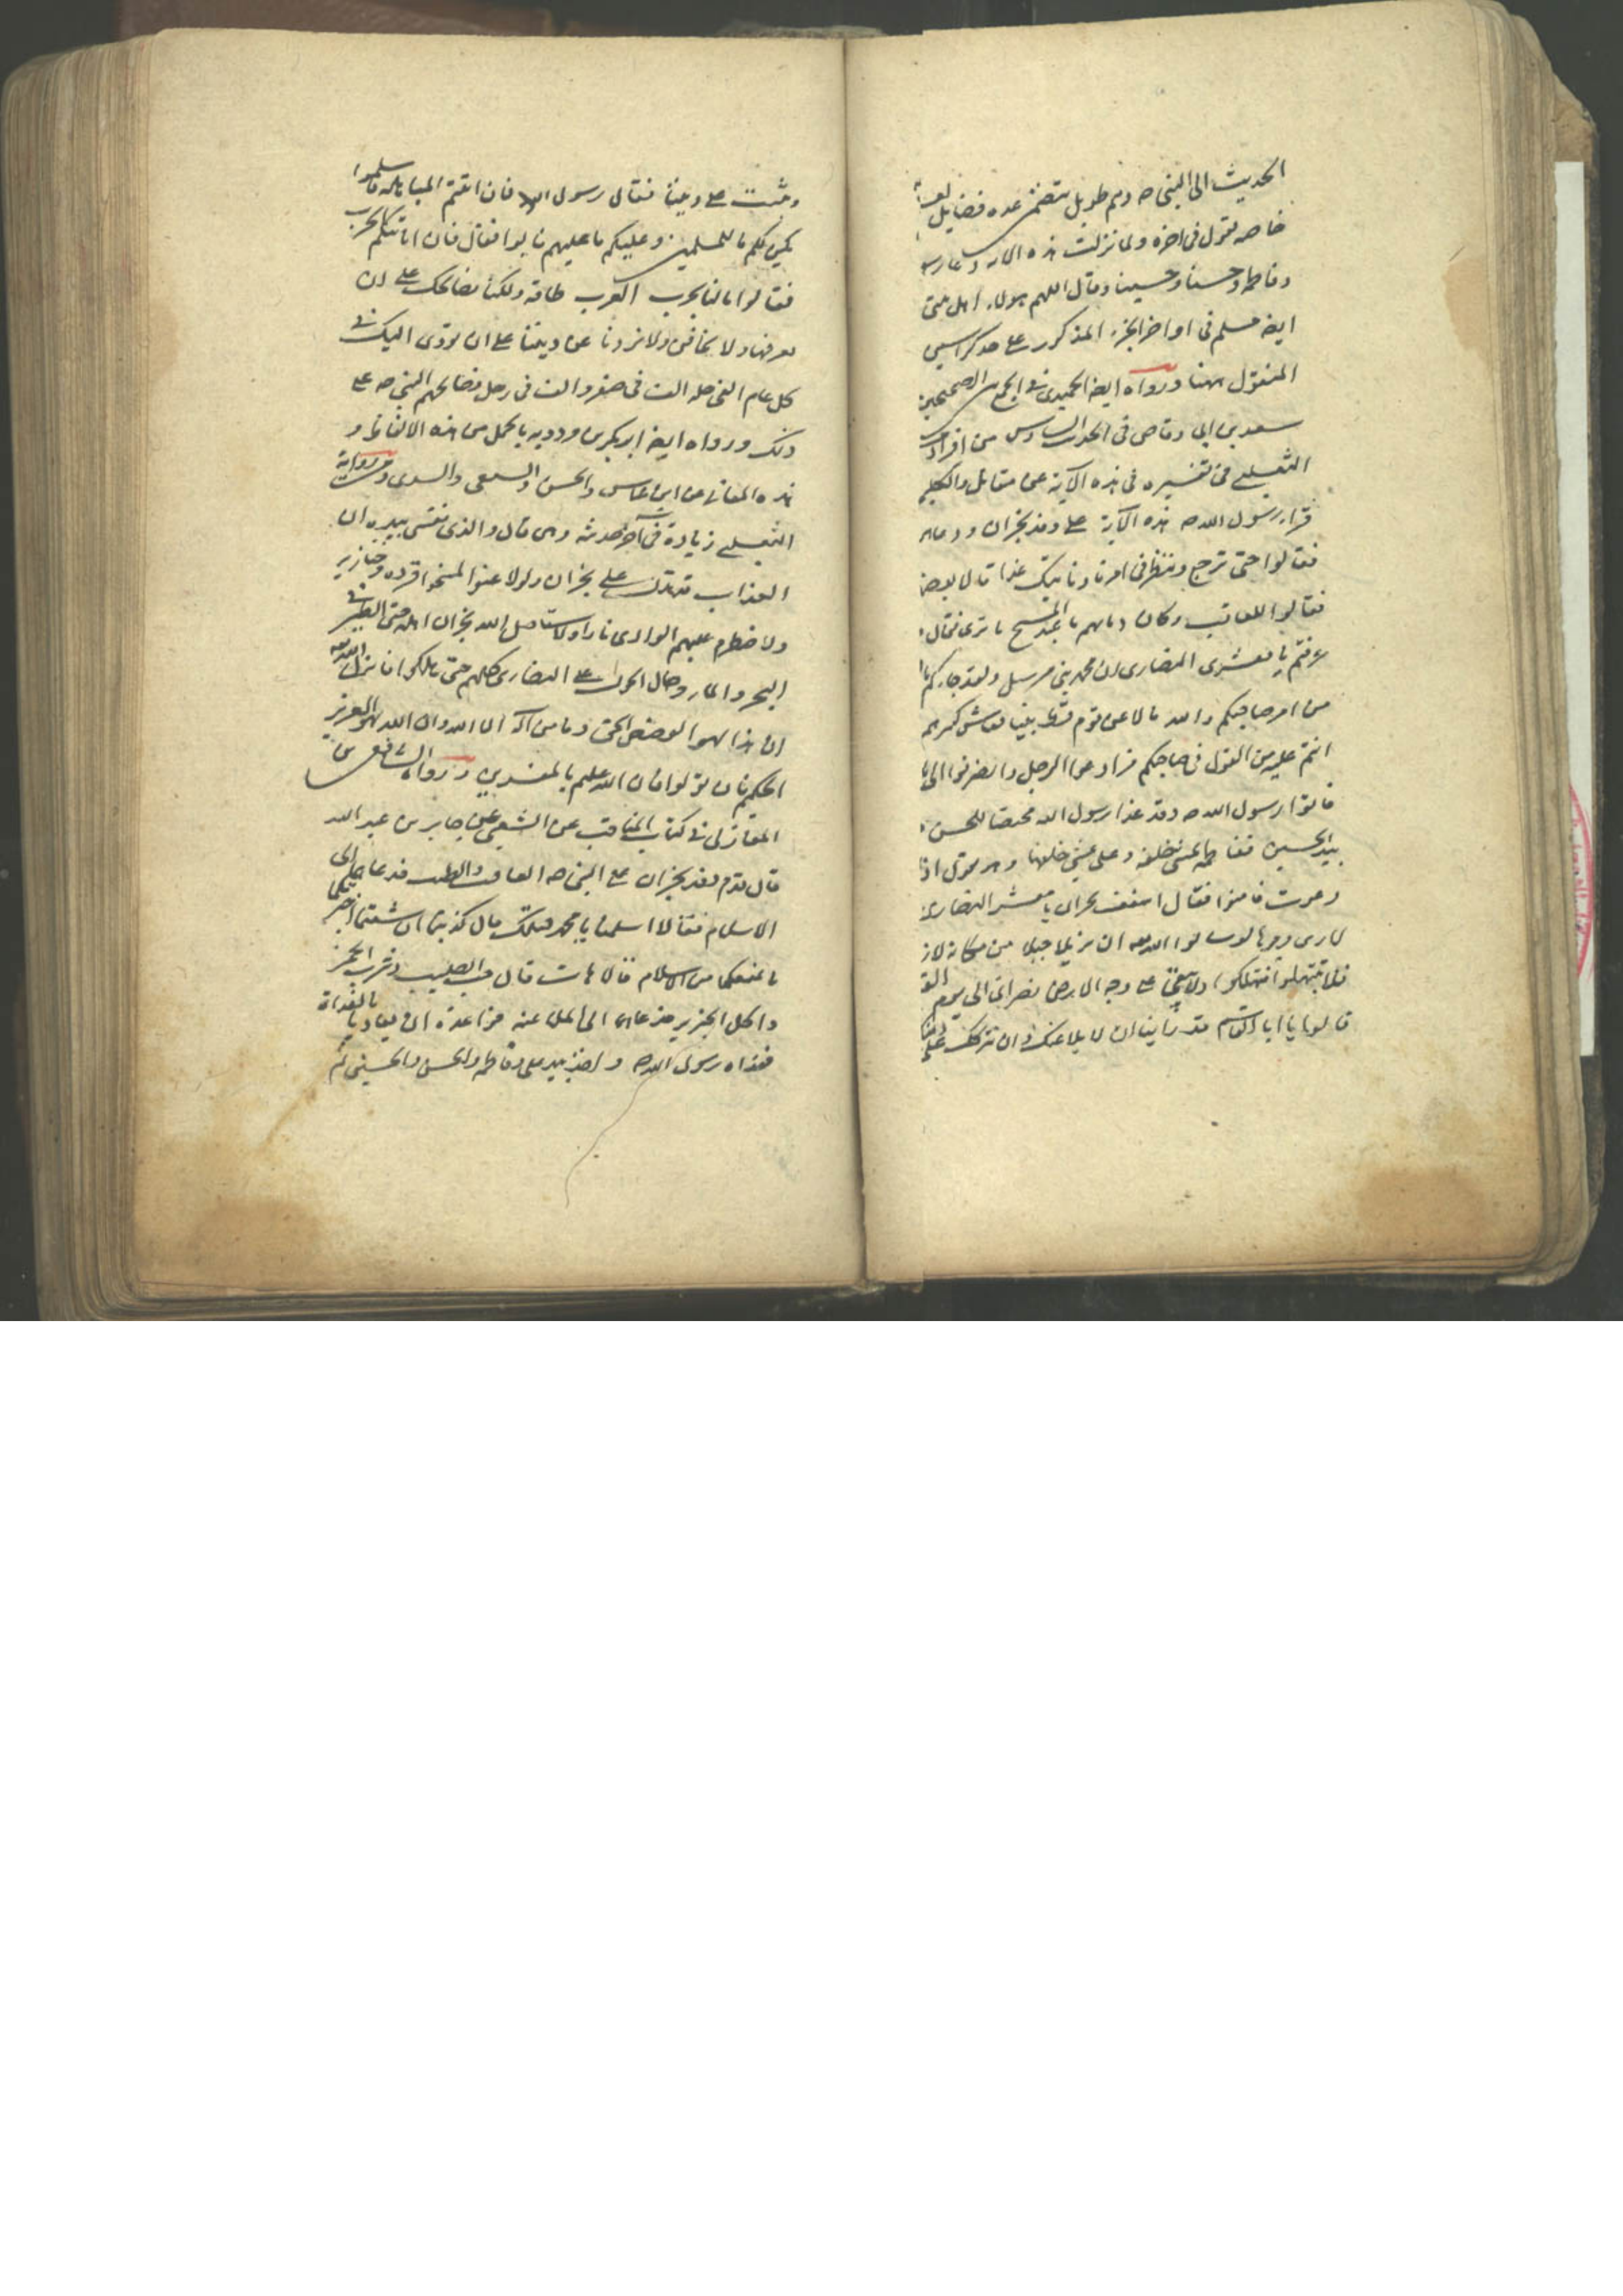 الحديث الى النبى صه وهم طويل يتضمن عده فضايل لعلى
خاصه يقول فى اخره ولما نزلت هذه الايه دعا رسو
وفاطمه وحسنا وحسينا وقال اللهم هولاء اهل بيتى
ايضه مسلم فى اواخر الجزء المذكور على حد كراسين
المنقول منها ورواه ايضه الحميدى فى الجمع بين الصحيحين
سعد بن ابى وقاص فى الحديث السادس من افراد
الثعلبى فى تفسيره فى هذه الآية عن مقاتل والكلبى
قراء رسول الله صه هذه الآية على وفد نجران ودعاهم
فقالوا حتى نرجع وننظر فى امرنا وناتيك غدا قال بعض
فقالوا للعاقب وكان ديانهم يا عبد المسيح ما ترى فقال
عرفتم يا معشرى النصارى ان محمد نبى مرسل ولقد جاءكم با
من امر صاحبكم والله ما لاعن قوم قط نبيا فعاش كبيرهم
انتم عليه من القول فى صاحبكم فوادعوا الرجل وانصرفوا الى
فاتوا رسول الله صه وقد غدا رسول الله محتضنا للحسن
بيد الحسين ففاطمه تمشى خلفه وعلى يمشى خلفها وهو يقول اذا
دعوت فامنوا فقال اسقف نجران يا معشر النصارى
لارى وجوها لو سالوا الله ان يزيل جبلا من مكانه لاز
فلا تبتهلوا فتهلكوا ولا يبقى على وجه الارض نصرانى الى يوم القـ
قالوا يا ابا القاسم قد رأينا ان لا يلاعنك وان نتركك على دينك
ونثبت على ديننا فقال رسول الله فان ابيتم المباهله فاسلموا
يكن لكم ما للمسلمين وعليكم ما عليهم فابوا فقال فان انابذكم بالحرب
فقالوا ما لنا بحرب العرب طاقه ولكنا نصالحك على ان
تغزونا ولا تخافنى ولا تردنا عن ديننا على ان نودى اليك فى
كل عام الفى حله الف فى صفر والف فى رجب فصالحهم النبى صه على
ذلك ورواه ايضه ابو بكر بن مردويه باكمل من هذه الالفاظ و
هذه المعانى عن ابن عباس والحسن والشعبى والسدى وفى رواية
الثعلبى زيادة فى آخر حديثه وهى قال والذى نفسى بيده ان
العذاب قد تدلى على نجران ولو لاعنوا لمسخوا قرده وخنازير
ولاضطرم عليهم الوادى نارا ولاستاصل الله نجران اهله حتى الطير فى
البحر والماء وحال الحول على النصارى كلهم حتى هلكوا فانزل الله
ان هذا لهو القصص الحق وما من اله الا الله وان الله لهو العزيز
الحكيم فان تولوا فان الله عليم بالمفسدين ورواه الشافعى بن
المغازلى فى كتاب المناقب عن الشعبى عن جابر بن عبد الله
قال قدم وفد نجران على النبى صه العاقب والطيب فدعاهما الى
الاسلام فقالا اسلمنا يا محمد قبلك قال كذبتما ان شئتما اخبرتكما
ما يمنعكما من الاسلام قالا هات قال حب الصليب وشرب الخمر
واكل الخنزير فدعاهما الى الملاعنه فواعداه ان يغادياه بالغداة
فغداه رسول الله صه واخذ بيد على وفاطمه والحسن والحسين ثم